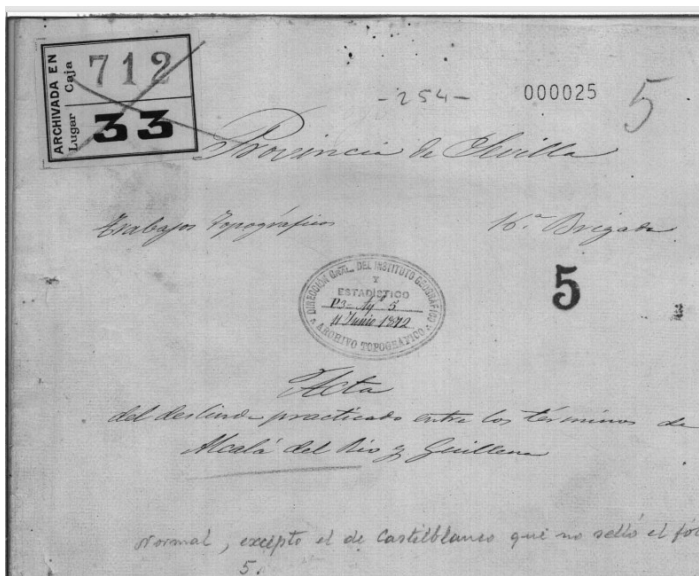 ARCHIVADA EN
Lugar Caja
712
33
-254- 000025 5
Provincia de Sevilla
Trabajos Topográficos 16.ª Brigada
5
DIRECCION GRAL. DEL INSTITUTO GEOGRÁFICO
Y
ESTADÍSTICO
11 Junio 1872
ARCHIVO TOPOGRÁFICO
Acta
del deslinde practicado entre los términos de
Alcalá del Rio y Guillena
Normal, excepto el de Castilblanco que no selló el
5.